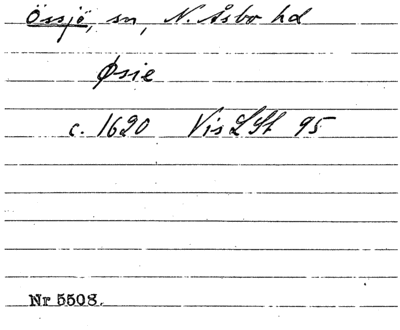 Össjö, sn, N. Åsbo hd
Øsie
c. 1620 Vis LSt 95
Nr 5508.